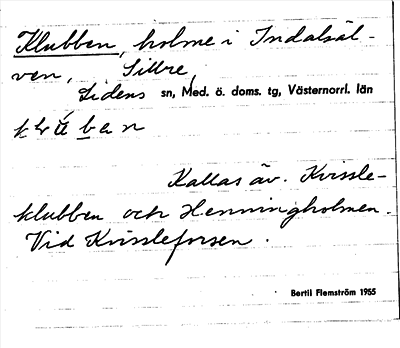 Klubben, holme i Indalsäl-
ven, Sillre,
Lidens sn, Med. ö. doms. tg, Västernorrl. län
klúban
Kallas äv. Kvissle-
klubben och Henningholmen.
Vid Kvissleforsen.
Bertil Flemström 1955